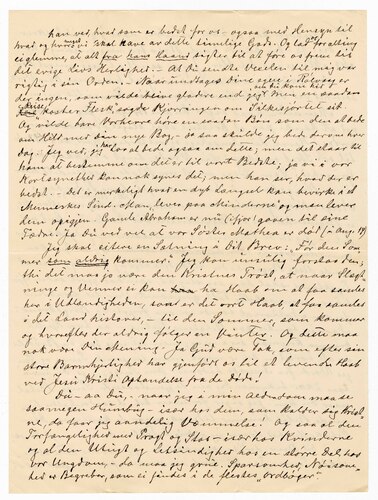 han ved, hvad som er bedst for os - ogsaa med Hensyn til
hvad og hvor meget vi skal have av dette timelige Gods. Og lad os for alting
ei glemme, at alt fra hans Haand sigter til at føre os frem til
det evige Livs Herlighed. - At Du sendte Vexelen det maa var
rigtig i sin Orden. - Naar undtages Dine egne i Holvaag er
der ingen, som vidste
"koster Flesk" sagde Kjerringen om
Og vilde bare Vorherre høre en saadan Bøn som den at bede
om Hild mer din nye Bog - ja saa skulde jeg bede derom hver
dag. Jeg ved, jeg har Lov at bede ogsaa om dette; men det staar til
ham at bestemme om det er til vort Bedste, ja vi i vor
Kortsynethed kan nok synes det; men han ser, hvad der er
bedst. - Det er mærkeligt hvad en dyb Længsel kan bevirke i et
Menneskes Sind. Man lever paa Minderne og man lever
dem opigjen. Gamle Abraham er nu (ifjor) gaaen til sine
Fædre. Ja Du ved vel at vor Søster Mathea er død (2 Aug. 19)
Jeg skal citere en Sætning i Dit Brev: "Før den Som-
mer som aldrig kommer". Jeg kan umulig forstaa den,
thi det maa jo være den Kristnes Trøst, at naar Slægt-
ninge og Venner ei kan ha Haab om at faa sandes
her i Udlændigheden, saa er det vort Haab at faa samles
i det Land histover, - til den Sommer, som kommer
og hvorefter der aldrig følger en Vinter. Og dette maa
nok være Din Mening. - Ja Gud være Tak, som efter sin
store Barmhjertighed har gjenfødt os til et levende Haab
ved Jesu Kristi Opstandelse fra de Døde!
Du - aa Du, - naar jeg i min Alderdom maa se
saa megen Humbug - især hos dem, som kalder sig Krist-
ne, da faar jeg aandelig Vemmelse! Og saa al den
Forfængelighed med Pragt og Stas - især hos Kvinderne
og al den Utugt og Letsindighed hos en større Del hos
vor Ungdom, - da maa jeg grue. Sparsomhed, Nøisom-
hed er Begreber, som ei findes i de flestes "Ordbøger".